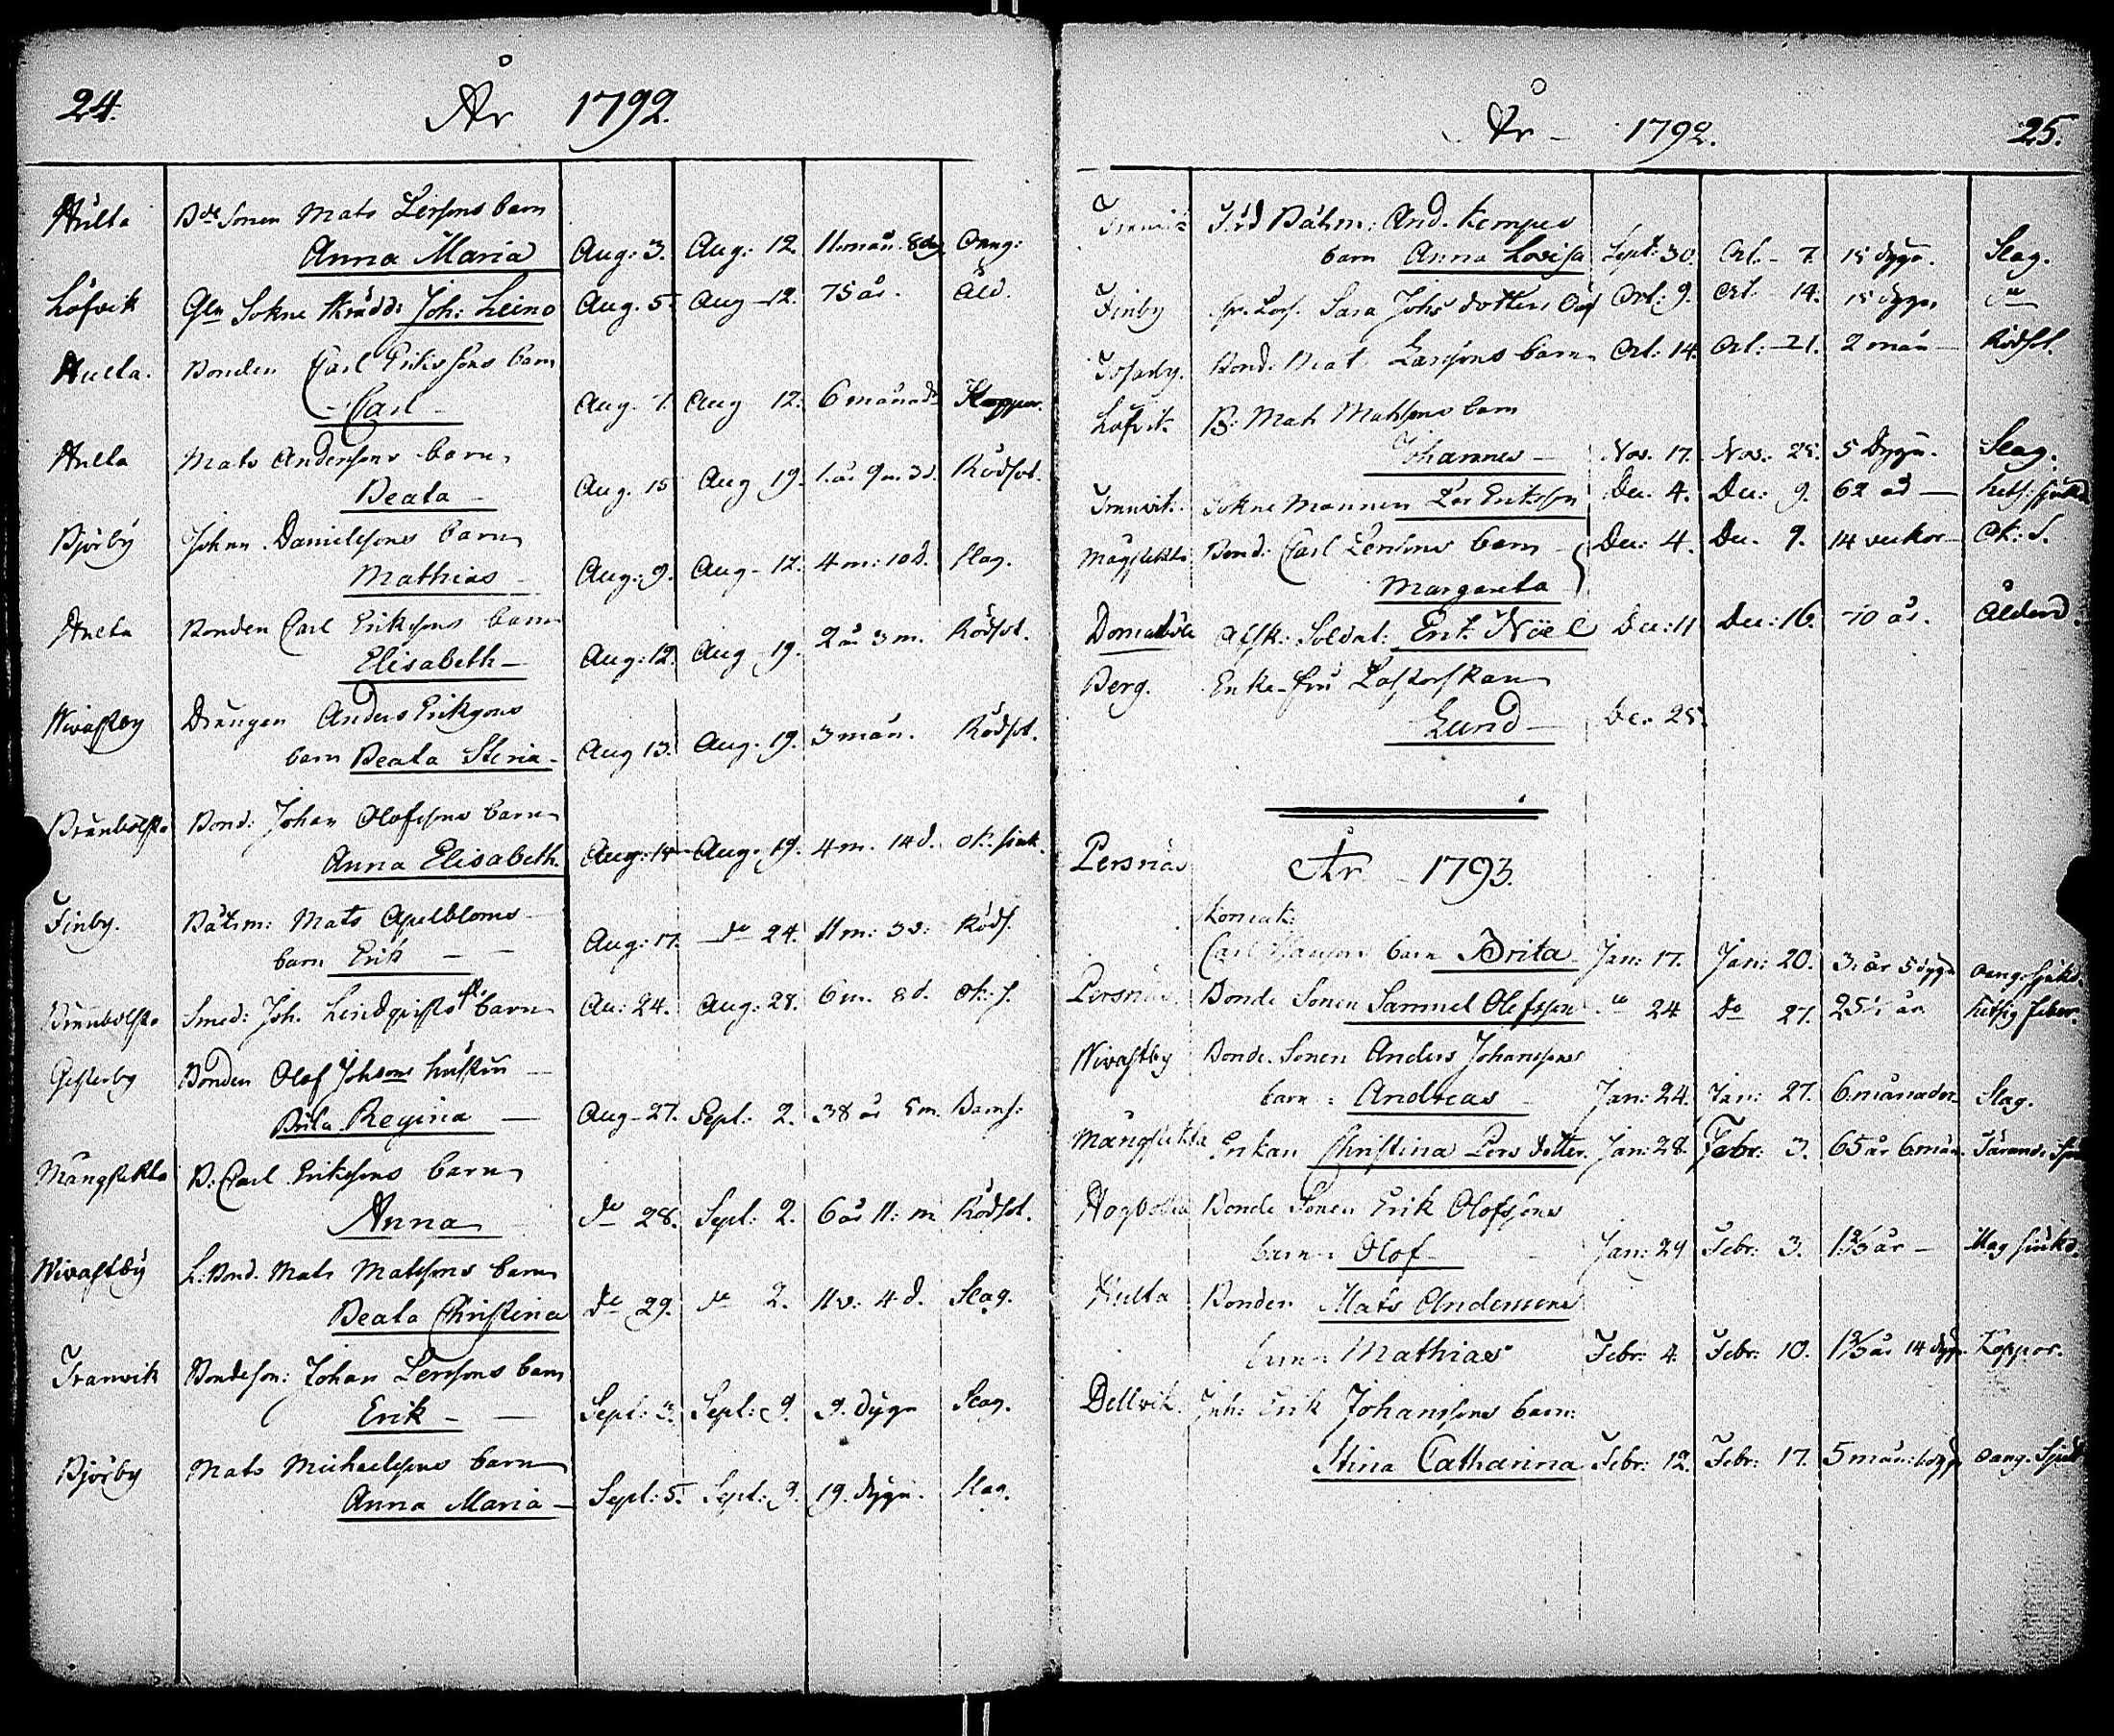 24.
År 1792.
Hulta Bde Sonen Mats Persons barn
Anna Maria Aug: 3. Aug: 12. 11 mån. 8 dag Oang:
Löfvik Gln Sokne Skrädd: Joh: Leino Aug. 5 Aug 12. 75 år. Åld.
Hulta. Bonden Carl Erikssons barn
Carl Aug. 7. Aug 12. 6 månad Koppor.
Hulta Mats Anderssons barn
Beata Aug. 15 Aug 19. 1. år 9 m. 3 d. Rödsot.
Björby Johan Danielssons barn
Mathias Aug: 9. Aug 12. 4 m: 10 d. Slag.
Hulta Bonden Carl Erikssons barn
Elisabeth Aug: 12. Aug 19. 2 å 3 m. Rödsot.
Nivastby Drängen Anders Eriksons
barn Beata Stina Aug 13. Aug. 19. 3 mån. Rödsot.
Brunbolsta Bond: Johan Olofssons barn
Anna Elisabeth Aug: 14 Aug. 19. 4 m. 14 d. ok. siuk.
Finby. Båtsm: Mats Apelbloms
barn Erik Aug: 17. do 24. 11 m: 3 v: Röds.
Brunbolsta Smed: Joh. Lindqvists barn Au: 24. Aug: 28. 6 m. 8 d. ok: s.
Gesterby Bonden Olof Johsons hustru
Brita Regina Aug 27. Sept: 2. 38 år 5 m. Barns:
Mångstekta B: Carl Erikssons barn
Anna do 28. Sept: 2. 6 år 11: m Rödsot.
Nivastby L: Bond. Mats Matssons barn
Beata Christina do 29. do 2. 11 v: 4 d. Slag.
Tranvik Bondeson: Johan Perssons barn
Erik Sept: 3. Sept: 9. 9. dygn Slag.
Björby Mats Michaelssons barn
Anna Maria Sept: 5. Sept: 9. 19. dygn. Slag.
År 1792.
25.
Tranvik Båtsm: And. Kempes
barn Anna Lovisa Sept: 30. Oct. 7. 15 dygn. Slag.
Finby Sara Johs dotters Oct: 9. Oct. 14. 15 dygn do
Bond: Mat. Larssons barn Oct: 14. Oct: 21. 2 mån Rödsot.
Löfvik B: Mats Matssons barn
Johannes Nov. 17. Nov. 25. 5 dygn. Slag.
Tranvik. Sokne Mannen Per Eriksson Dec. 4. Dec: 9. 62 år
Mågstekta Bond: Carl Persons barn Dec: 4. Dec. 9. 14 veckor Ok: S.
Margareta
Domarböle Afsk: Soldat: Erik Nöel Dec: 11 Dec: 16. 70 år. Ålderd.
Berg. Enke-fru Pastorskan
Lund Dec. 25.
Persnäs År 1793.
Carl barn Brita Jan: 17. Jan: 20. 3: år 5 dygn oang: sjukd.
Persnäs Bonde Sonen Samuel Olofsson do 24 do 27. 25½ år hetsig feber.
Nivastby Bonde Sonen Anders Johanssons
barn: Andreas Jan: 24. Jan: 27. 6: månader Slag.
Mångstekta Enkan Christina Pers dotter. Jan: 28. Febr: 3. 65 år 6 mån. Tärande
Hogböle Bonde Sonen Erik Olofssons
barn: Olof Jan: 29 Febr: 3. år Mag siukd.
Hulta Bonden Mats Anderssons
barn: Mathias Febr: 4. Febr: 10. år 14 dygn Koppor.
Dellvik. Inh: Erik Johanssons barn:
Stina Catharina Febr: 12. Febr: 17. 5 mån: Oang. Sjukd